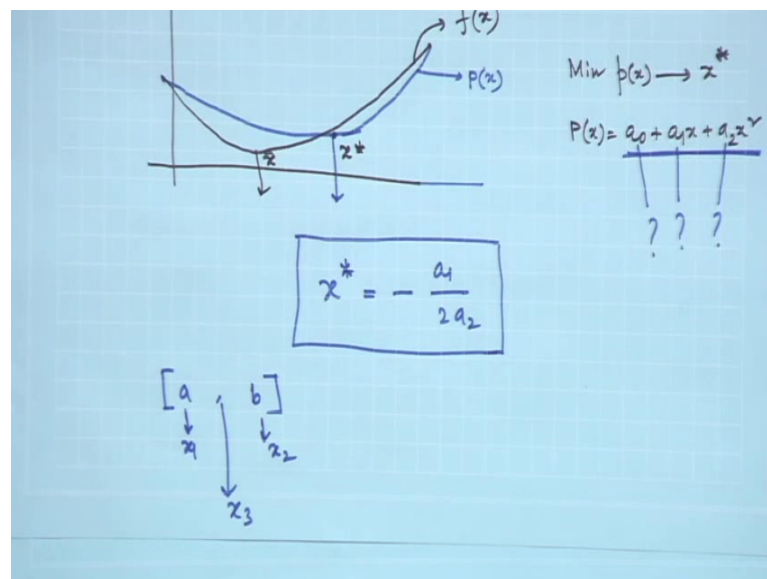 f(x)
P(x)
x̄
x*
Min p(x) → x*
P(x) = a₀ + a₁x + a₂x²
? ? ?
x* = - a₁ / 2a₂
[a , b]
x₁
x₂
x₃